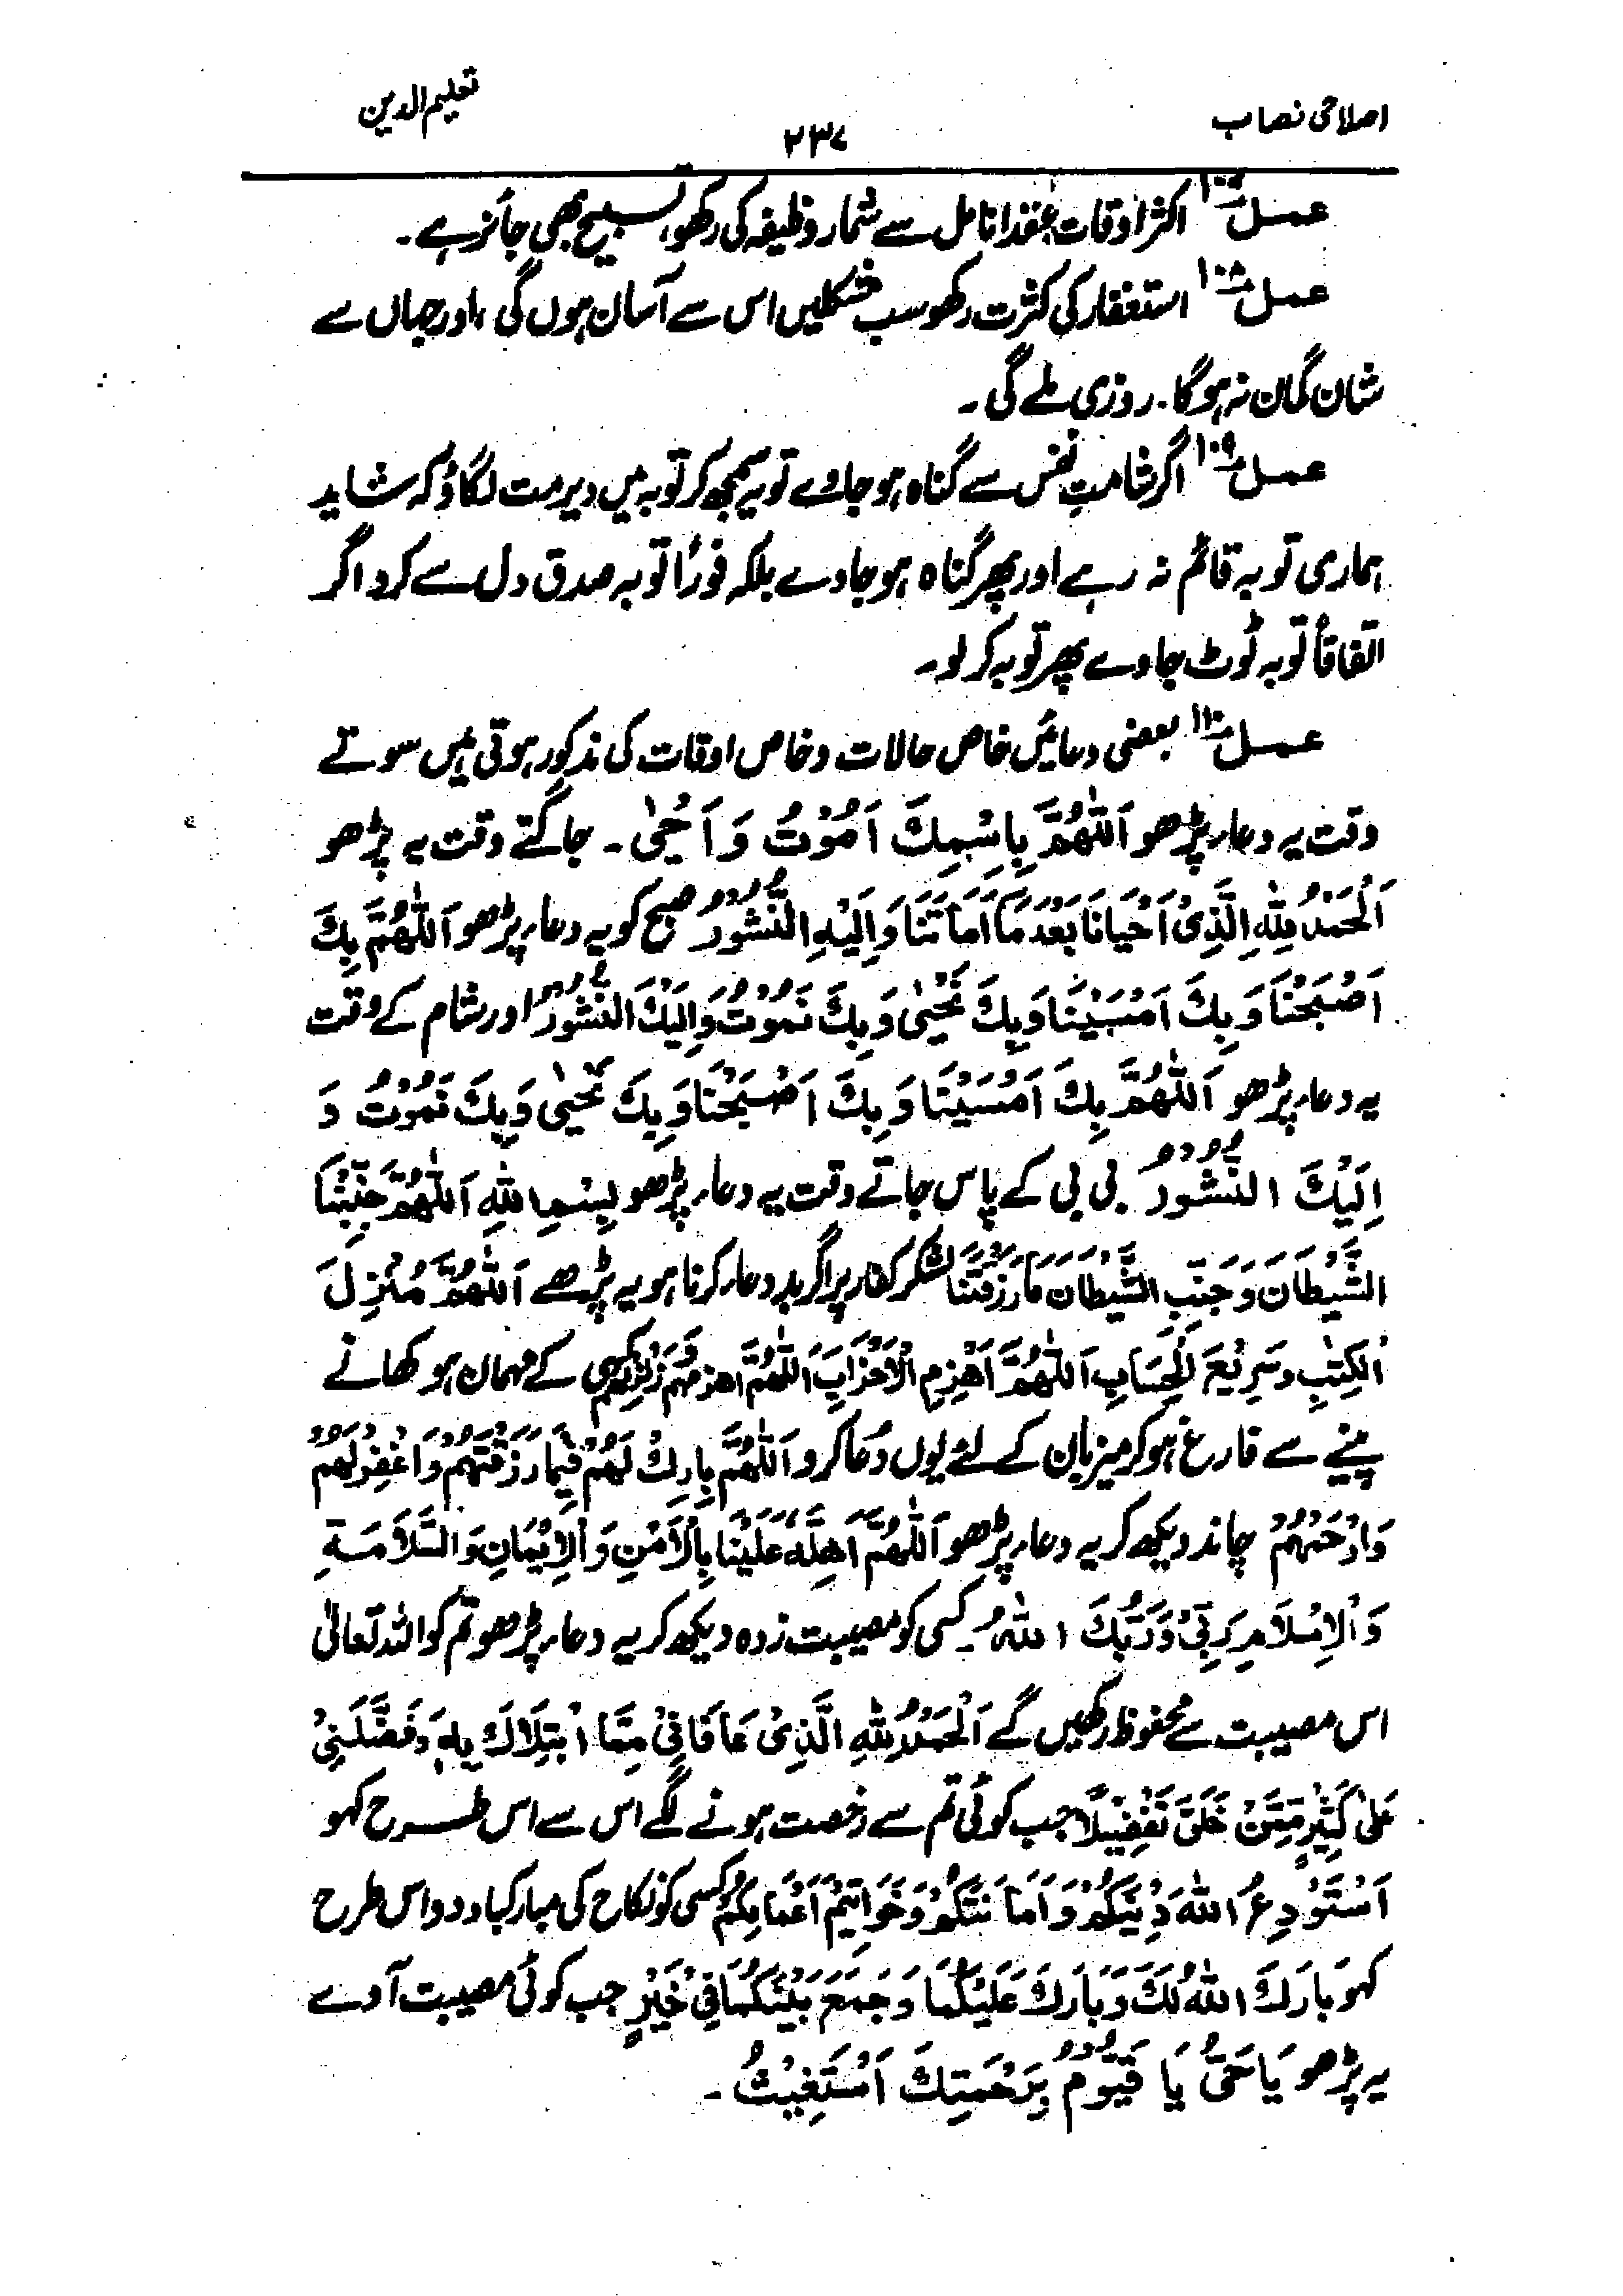 اصلاحی نصاب
۲۳۷
تعلیم الدین
عمل ۱۰۷ اکثر اوقات عقد انامل سے شمار وظیفہ کی رکھو، تسبیح بھی جائز ہے۔
عمل ۱۰۸ استغفار کی کثرت رکھو سب مشکلیں اس سے آسان ہوں گی، اور جہاں سے
شان گمان نہ ہوگا۔ روزی ملے گی۔
عمل ۱۰۹ اگر شامتِ نفس سے گناہ ہوجاوے تو یہ سمجھ کر توبہ میں دیر مت لگاؤ کہ شاید
ہماری توبہ قائم نہ رہے اور پھر گناہ ہوجاوے بلکہ فورًا توبہ صدق دل سے کرو اگر
اتفاقاً توبہ ٹوٹ جاوے پھر توبہ کر لو۔
عمل ۱۱۰ بعضی دعائیں خاص حالات و خاص اوقات کی مذکور ہوتی ہیں سوتے
وقت یہ دعاء پڑھو اَللّٰهُمَّ بِاسْمِكَ اَمُوْتُ وَاَحْیٰی۔ جاگتے وقت یہ پڑھو
اَلْحَمْدُ لِلّٰهِ الَّذِیْ اَحْیَانَا بَعْدَ مَا اَمَاتَنَا وَاِلَیْهِ النُّشُوْرُ صبح کو یہ دعاء پڑھو اَللّٰهُمَّ بِكَ
اَصْبَحْنَا وَبِكَ اَمْسَیْنَا وَبِكَ نَحْیٰی وَبِكَ نَمُوْتُ وَاِلَیْكَ النُّشُوْرُ اور شام کے وقت
یہ دعاء پڑھو اَللّٰهُمَّ بِكَ اَمْسَیْنَا وَبِكَ اَصْبَحْنَا وَبِكَ نَحْیٰی وَبِكَ نَمُوْتُ وَ
اِلَیْكَ النُّشُوْرُ بی بی کے پاس جاتے وقت یہ دعاء پڑھو بِسْمِ اللّٰهِ اَللّٰهُمَّ جَنِّبْنَا
الشَّیْطَانَ وَجَنِّبِ الشَّیْطَانَ مَا رَزَقْتَنَا لشکر کفار پر اگر بد دعاء کرنا ہو یہ پڑھے اَللّٰهُمَّ مُنْزِلَ
الْكِتٰبِ وَسَرِیْعَ الْحِسَابِ اَللّٰهُمَّ اَهْزِمِ الْاَحْزَابَ اَللّٰهُمَّ اهْزِمْهُمْ وَزَلْزِلْهُمْ کسی کے مہمان ہو کھانے
پینے سے فارغ ہوکر میزبان کے لئے یوں دُعا کرو اَللّٰهُمَّ بَارِكْ لَهُمْ فِیْمَا رَزَقْتَهُمْ وَاغْفِرْ لَهُمْ
وَارْحَمْهُمْ چاند دیکھ کر یہ دعاء پڑھو اَللّٰهُمَّ اَهِلَّهٗ عَلَیْنَا بِالْاَمْنِ وَالْاِیْمَانِ وَالسَّلَامَةِ
وَالْاِسْلَامِ رَبِّیْ وَرَبُّكَ اللّٰهُ۔ کسی کو مصیبت زدہ دیکھ کر یہ دعاء پڑھو تم کو اللہ تعالیٰ
اس مصیبت سے محفوظ رکھیں گے اَلْحَمْدُ لِلّٰهِ الَّذِیْ عَافَانِیْ مِمَّا ابْتَلَاكَ بِهٖ وَفَضَّلَنِیْ
عَلٰی كَثِیْرٍ مِّمَّنْ خَلَقَ تَفْضِیْلًا جب کوئی تم سے رخصت ہونے لگے اس سے اس طرح کہو
اَسْتَوْدِعُ اللّٰهَ دِیْنَكُمْ وَاَمَانَتَكُمْ وَخَوَاتِیْمَ اَعْمَالِكُمْ کسی کو نکاح کی مبارکباد دو اس طرح
کہو بَارَكَ اللّٰهُ لَكَ وَبَارَكَ عَلَیْكُمَا وَجَمَعَ بَیْنَكُمَا فِیْ خَیْرٍ جب کوئی مصیبت آوے
یہ پڑھو یَا حَیُّ یَا قَیُّوْمُ بِرَحْمَتِكَ اَسْتَغِیْثُ۔